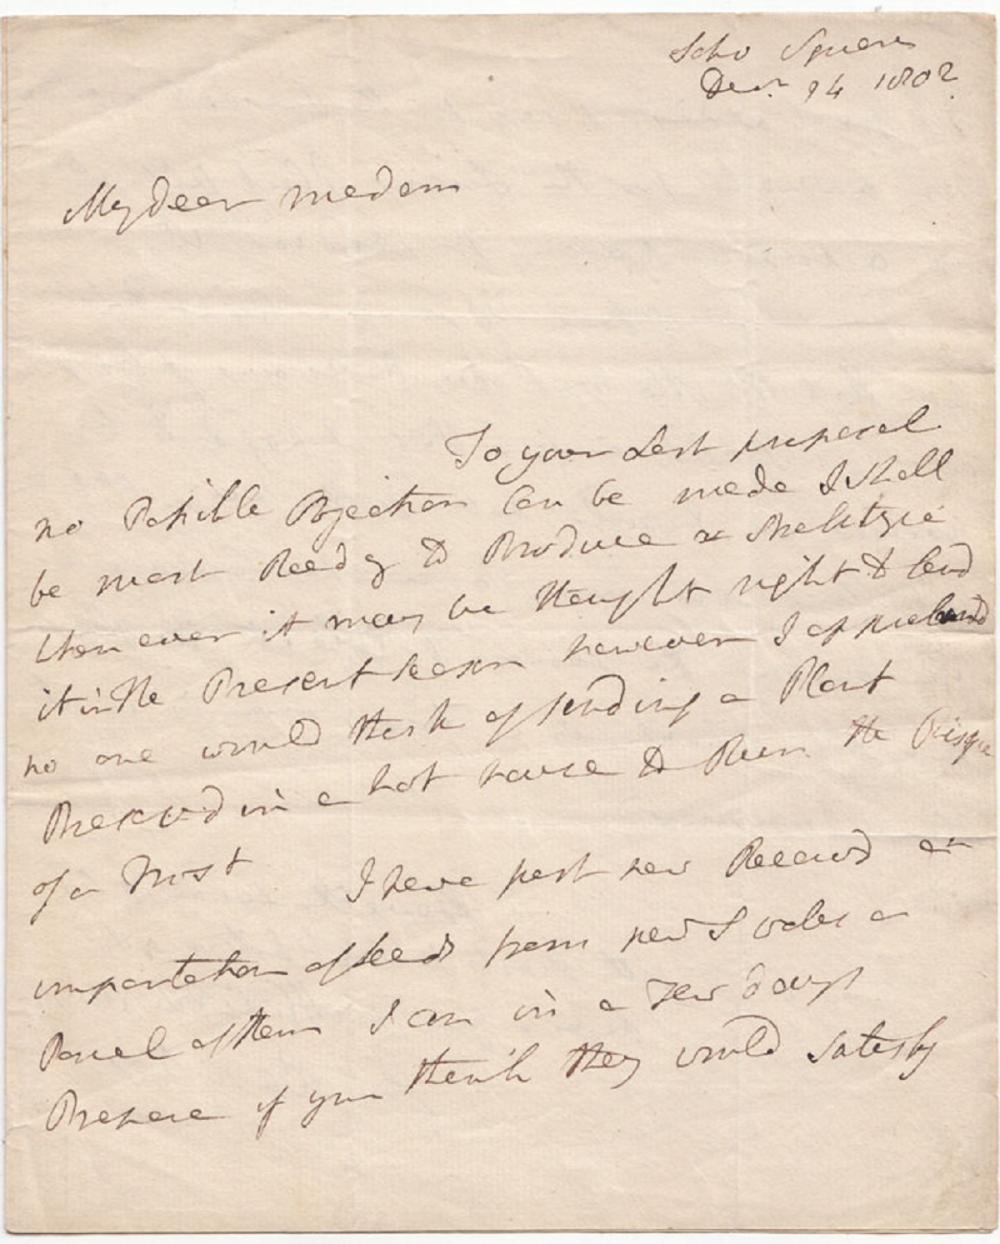 Soho Square
Decr. 14 1802
My dear madam
To your Last proposal
no Possible Objection Can be made I shall
be most Ready to Produce a Strelitzia
when ever it may be thought right to send
it in the Present season however I apprehend
no one would think of sending a Plant
Preservd in a hot house to Run the Risque
of a Frost I have just now Receivd an
importation of seeds from new S wales a
Parcel of them I can in a Few days
Prepare if you think they would satisfy